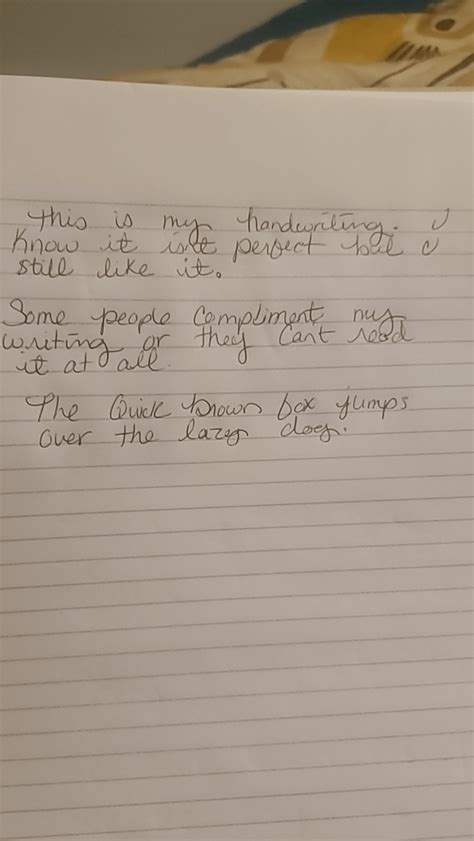 this is my handwriting. I
know it isnt perfect but I
still like it.
Some people compliment my
writing or they cant read
it at all.
The Quick brown fox jumps
over the lazy dog.